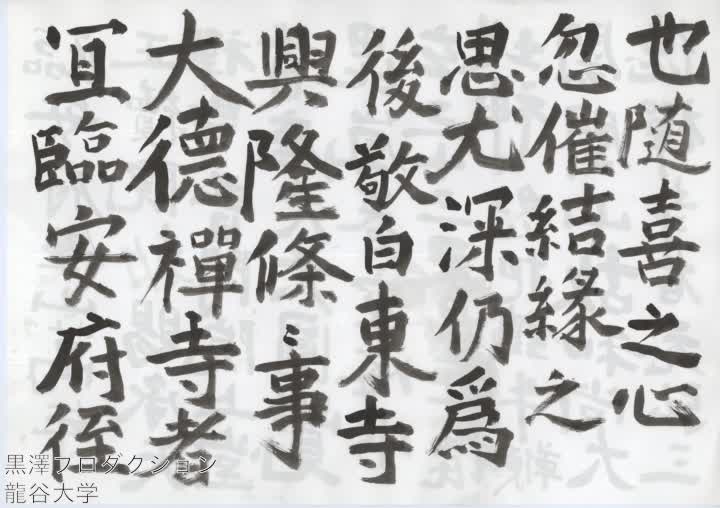 也随喜之心
忽催結緣之
思尤深仍爲
後敬白東寺
興隆條〻事
大德禪寺者
冝臨安府徑
黒澤プロダクション
龍谷大学